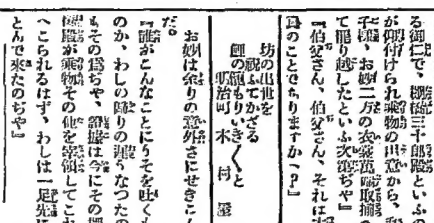 る御仁で、
が仰付けられ乘物の用意から、
お妙二方の衣裳萬端取揃
て罷り越したといふ次第ぢや』
『伯父さん、伯父さん、それは
眞のことでありますか？』
坊の出世を
祝ふてかざる
鯉の瀧もりいき〱と
明治町 木村屋
お妙は余りの意外さにせきこん
だ。
『誰がこんなことにうそを吐く
のか、わしの歸りの遲うなつた
もその爲ぢや、證據は今にその
殿が乘物その他を宰領してこ
へこられるはず、わしは一足先
とんで來たのぢや』